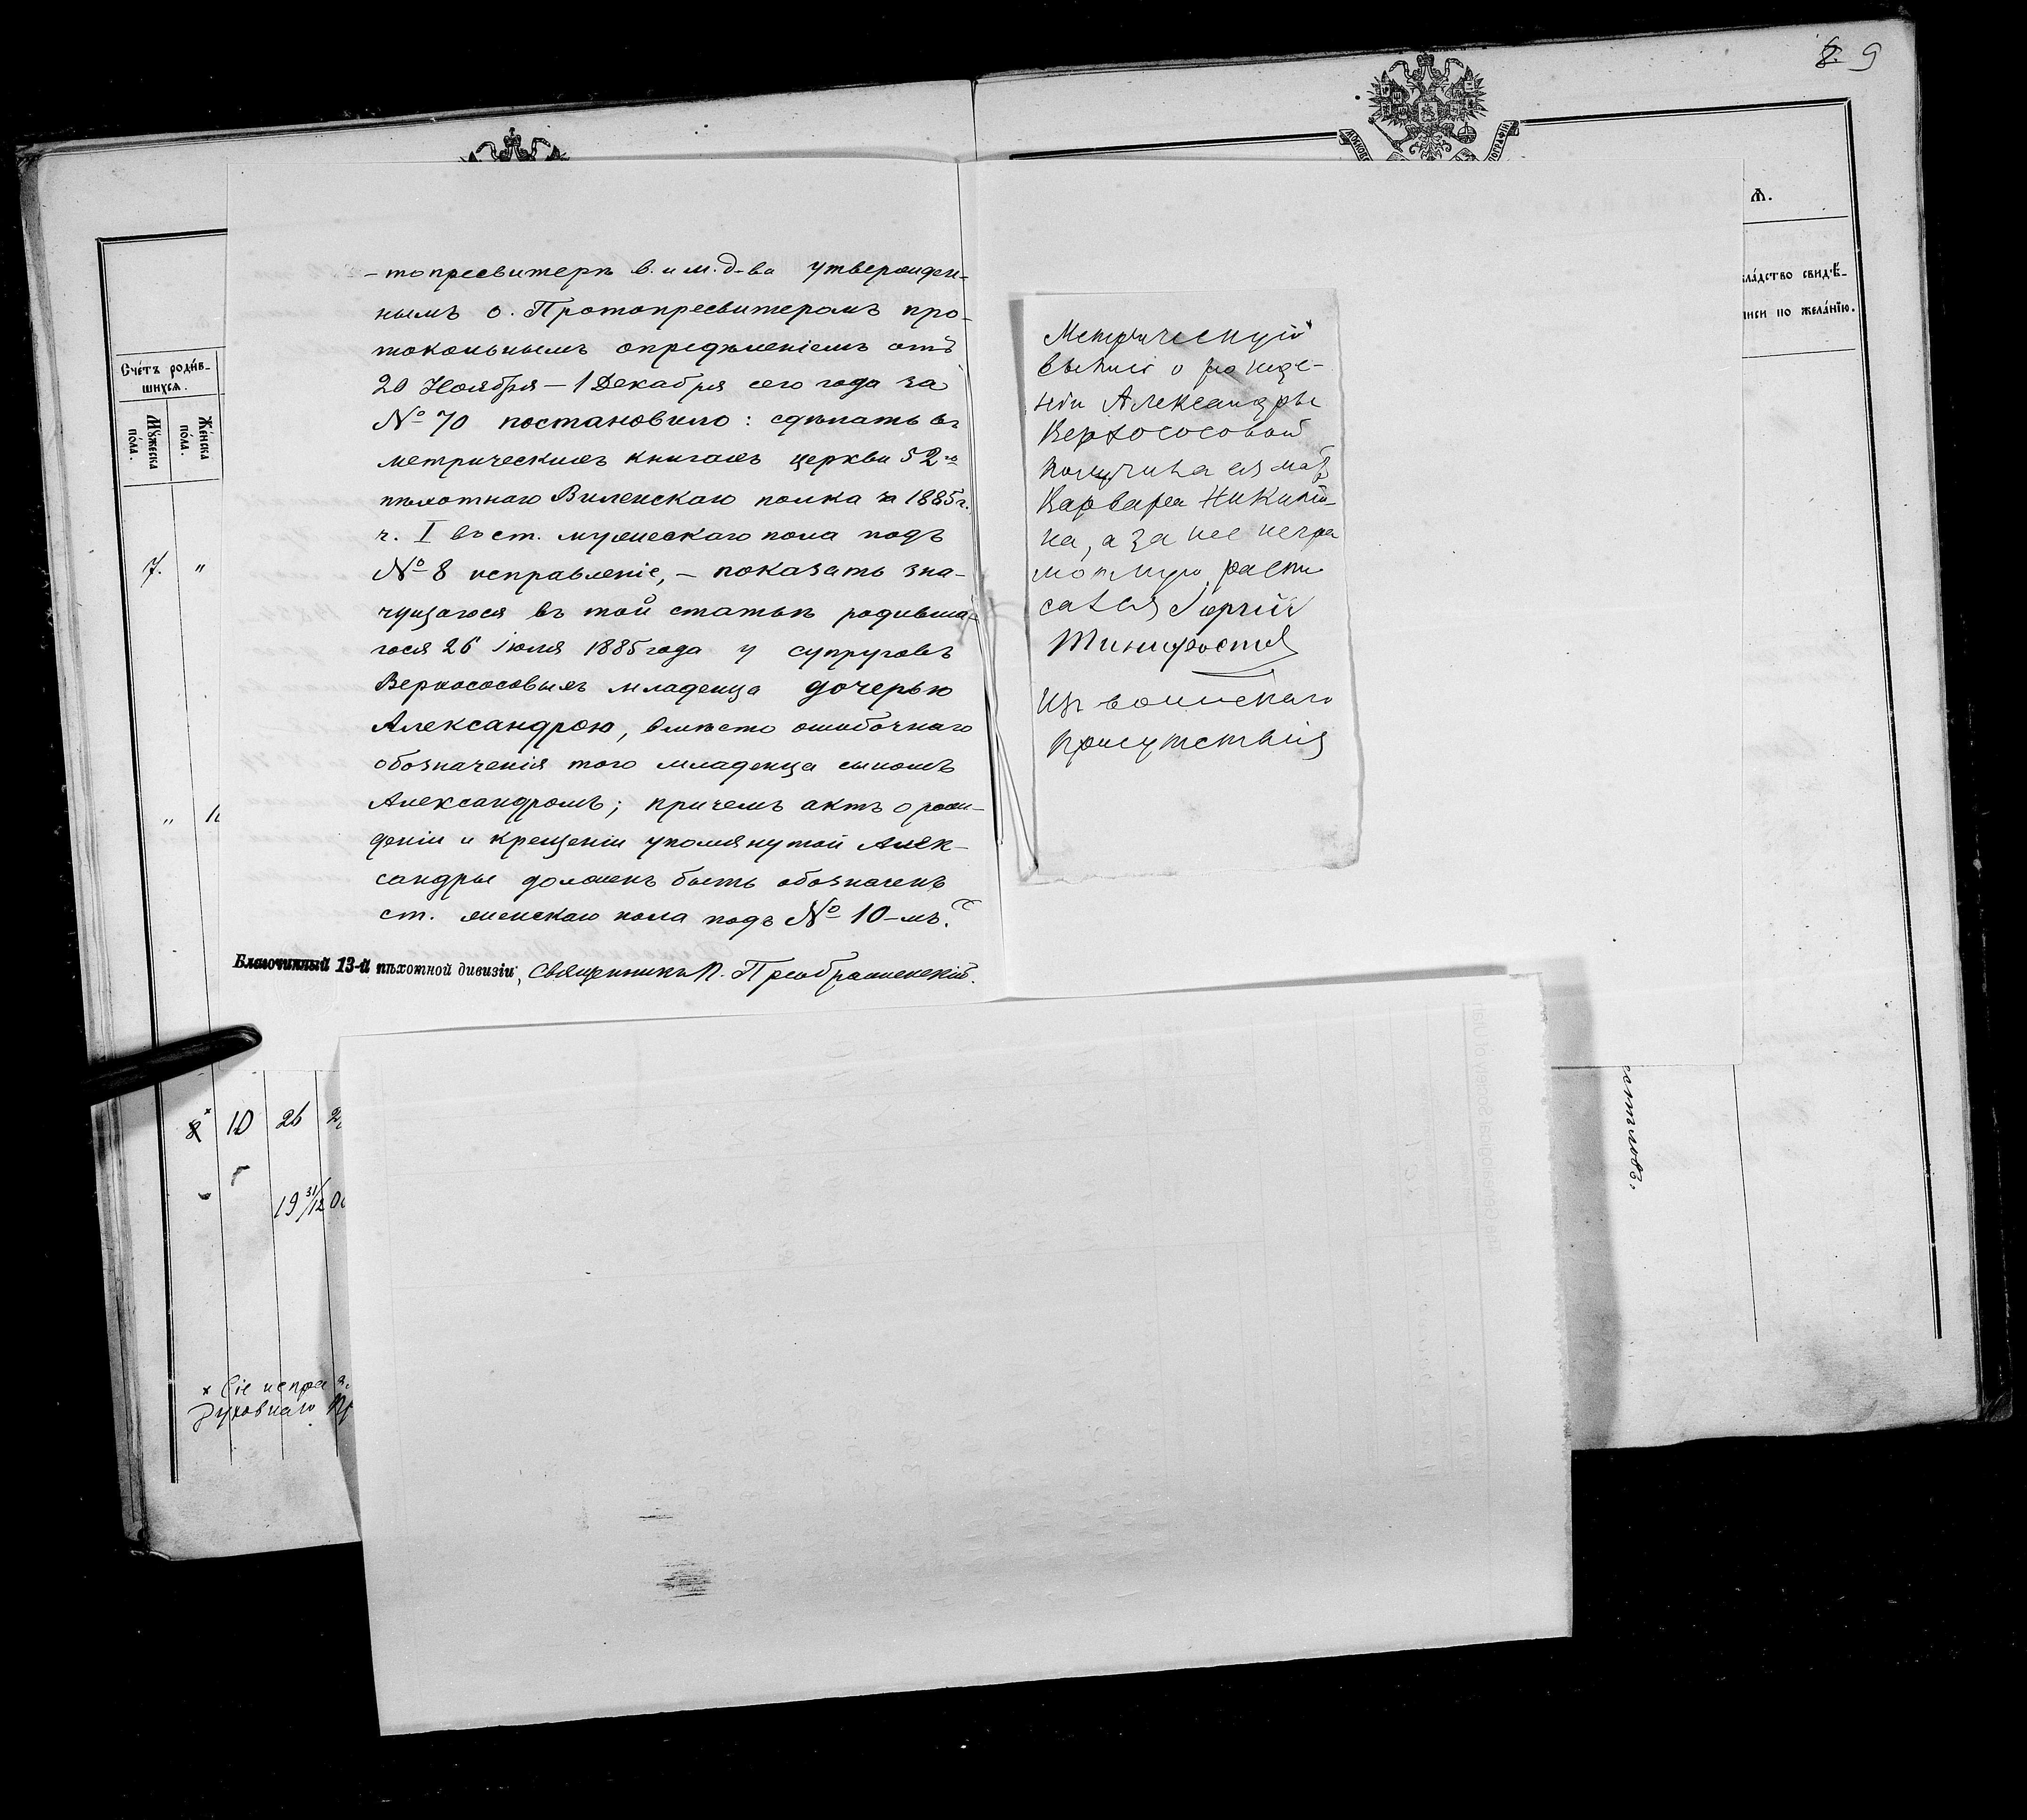 8. 9
Ѧ.
Счéтъ роди́в-
шихсѧ.
Мꙋ́жеска
по́ла.
Же́нска
по́ла.
-топресвитерѣ в. и м. д-ва утвержден-
нымъ о. Протопресвитеромъ про-
токольнымъ опредѣленіемъ отъ
20 Ноября – 1 Декабря сего года за
№ 70 постановило: сдѣлать въ
метрическихъ книгахъ церкви 52го
пѣхотнаго Виленскаго полка за 1885 г.
ч. I въ ст. мужескаго пола подъ
№ 8 исправленіе, – показать зна-
чущагося въ той статьѣ родивша-
гося 26 іюля 1885 года у супруговъ
Верхососовыхъ младенца дочерью
Александрою, вмѣсто ошибочнаго
обозначенія того младенца сыномъ
Александромъ; причемъ актъ о рож-
деніи и крещеніи упомянутой Алек-
сандры долженъ быть обозначенъ
ст. женскаго пола подъ № 10-мъ."
Благочинный 13-й пѣхотной дивизіи, Священникъ П. Преображенскій.
7. "
"
8× 10 26
19 31/12
× Сіе испра
Духовнаго
Метрическую
выпись о рожде-
ніи Александры
Верхососовой
получила ея мать
Варвара Никити-
на, а за нее негра
мотную распи
сался Сергій
изъ воинскаго
присутствія
свидѣ-
по жела́нїю.